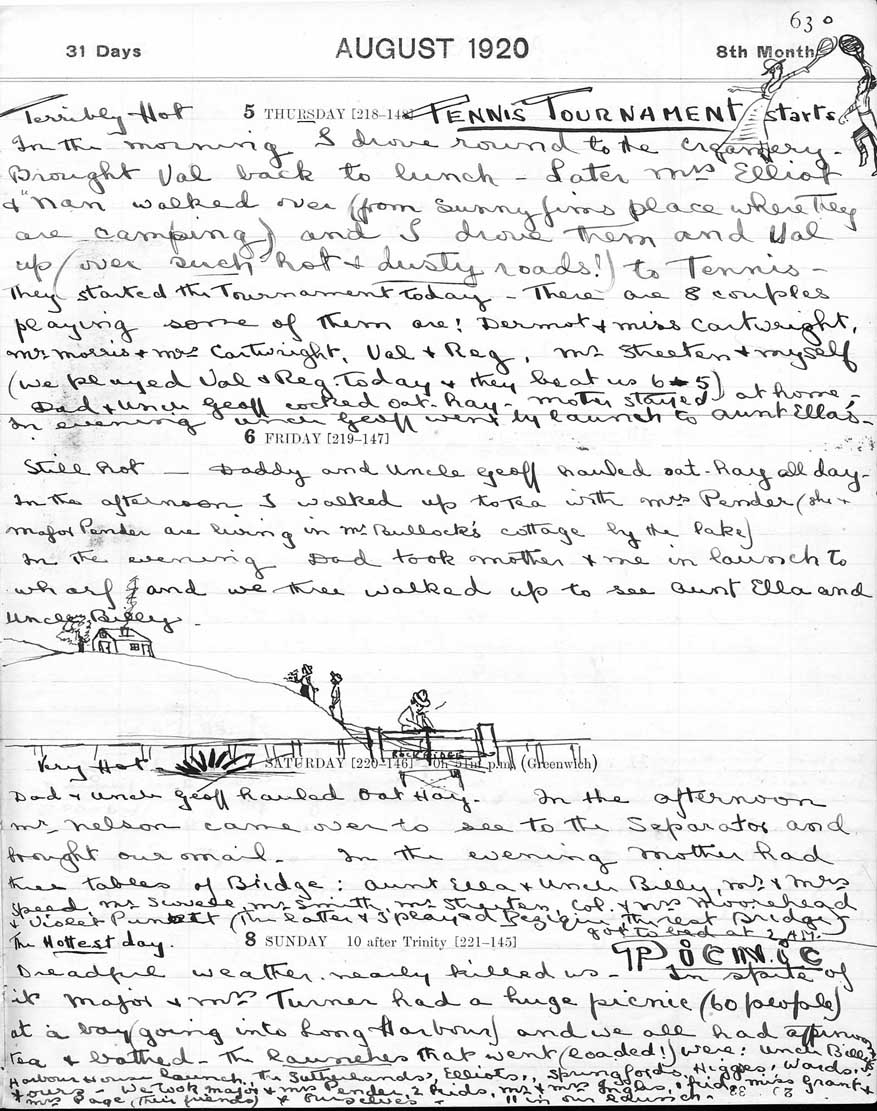 63
31 Days AUGUST 1920 8th Month
Terribly Hot 5 THURSDAY [218-148] TENNIS TOURNAMENT starts.
In the morning I drove round to the creamery.
Brought Val back to lunch - Later Mrs Elliot
& Nan walked over (from Sunny Jims place where they
are camping) and I drove them and Val
up (over such hot & dusty roads!) to Tennis -
They started the Tournament today - There are 8 couples
playing some of them are: Dermot & Miss Cartwright,
Mr Morris & Mrs Cartwright, Val & Reg, Mr Streeten & myself
(we played Val & Reg today & they beat us 6 - 5)
Dad & Uncle Geoff cocked oat-hay - Mother stayed at home -
In evening Uncle Geoff went by launch to Aunt Ella's -
6 FRIDAY [219-147]
Still hot - Daddy and Uncle Geoff hauled oat-hay all day -
In the afternoon I walked up to tea with Mrs Pender (she &
Major Pender are living in Mr Bullock's cottage by the lake)
In the evening Dad took Mother & me in launch to
wharf and we three walked up to see Aunt Ella and
Uncle Billy -
ROCKRIDGE
Very Hot SATURDAY [220-146] 0h 51m p.m. (Greenwich)
Dad & Uncle Geoff hauled Oat Hay. In the afternoon
Mr Nelson came over to see to the Separator and
brought our mail - In the evening Mother had
three tables of Bridge: Aunt Ella & Uncle Billy, Mr & Mrs
Speed, Mr Smith, Mr Streeten, Col. & Mrs Moorehead
& Violet (the latter & I played Bezique the rest Bridge)
got to bed at 2 A.M.
The Hottest day. 8 SUNDAY 10 after Trinity [221-145] PICNIC
Dreadful weather nearly killed us - In spite of
it Major & Mrs Turner had a huge picnic (60 people)
at a bay (going into Long Harbour) and we all had afternoon
tea & bathed - The launches that went (loaded!) were: Uncle Billy's
Harbour House launch, the Sutherlands', Elliots, Springfords, Higgs, Wards,
& ours - We took Major & Mrs Pender, 2 kids, Mr & Mrs Ingles, 1 kid, Miss Grant &
Mrs Page (their friends) & ourselves - 11 in our launch -